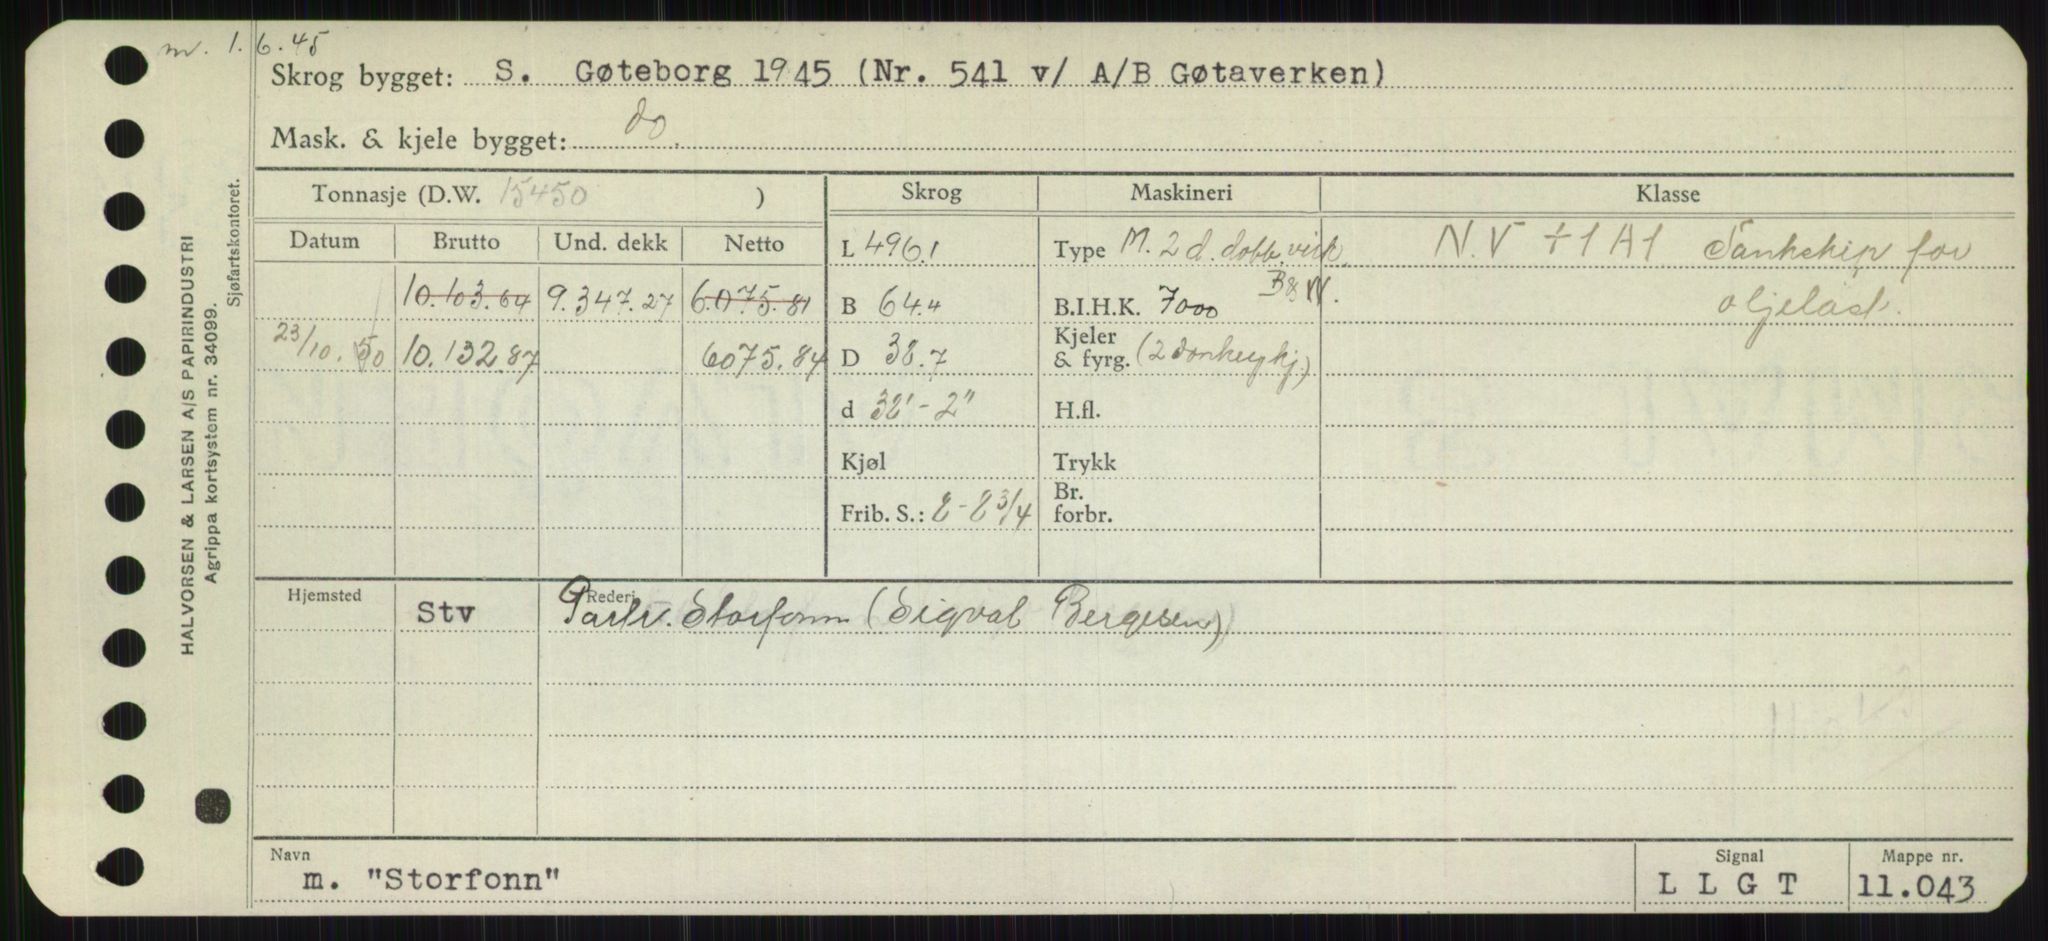 m. 1.6.45
Skrog bygget: S. Gøteborg 1945 (Nr. 541 v/ A/B Gøtaverken)
Mask. & kjele bygget: do.
HALVORSEN & LARSEN A/S PAPIRINDUSTRI
Agrippa kortsystem nr. 34099.
Sjøfartskontoret.
Tonnasje (D.W. 15450 ) Skrog Maskineri Klasse
Datum Brutto Und. dekk Netto
L 496.1 Type M. 2 d. dobb. virk. N.V +1A1 Tankskip for
10.103.64 9.347.27 6.075.81 B 64.4 B.I.H.K. 7000 B&W. oljelast.
23/10.50 10.132.87 6075.84 D 38.7 Kjeler & fyrg. (2 donkeykj.)
d 32'-2" H.fl.
Kjøl Trykk
Frib. S.: 8-8 3/4 Br. forbr.
Hjemsted Rederi
Stv Partr. Storfonn (Sigval Bergesen)
Navn Signal Mappe nr.
m. "Storfonn" L L G T 11.043